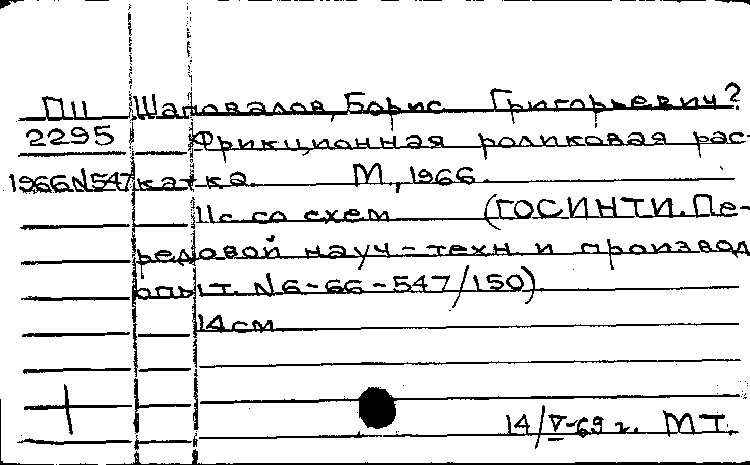 П11 Шаповалов, Борис Григорьевич?
2295 Фрикционная роликовая рас-
1966N547 катка. М., 1966.
11с со схем (ГОСИНТИ. Пе-
редовой науч-техн и производ
опыт. N6-66-547/150)
14см
14/V-69 г. МТ.